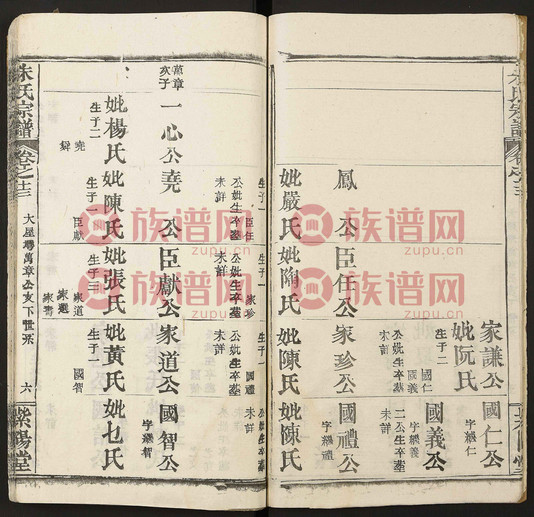 家謙公
國仁公
字繼仁
妣阮氏
生子二
國仁
國義
國義公
字繼義
公妣生卒墓
未詳
二公生卒墓
未詳
鳳公
臣任公
家珍公
國禮公
妣嚴氏
妣隋氏
妣陳氏
妣陳氏
生子二
臣任
公妣生卒墓
未詳
生子一
家珍
公妣生卒墓
未詳
生子一
國禮
公妣生卒墓
未詳
公妣生卒墓
未詳
萬章
亥子
一心公
堯公
臣獻公
家道公
國智公
字繼智
妣楊氏
妣陳氏
妣張氏
妣黃氏
妣乜氏
生子二
堯
生子一
臣獻
生子三
家道
家選
生子一
國智
朱氏宗譜
卷之十三
大屋灣萬章公支下世系
六
紫陽堂
族谱网
zupu.cn